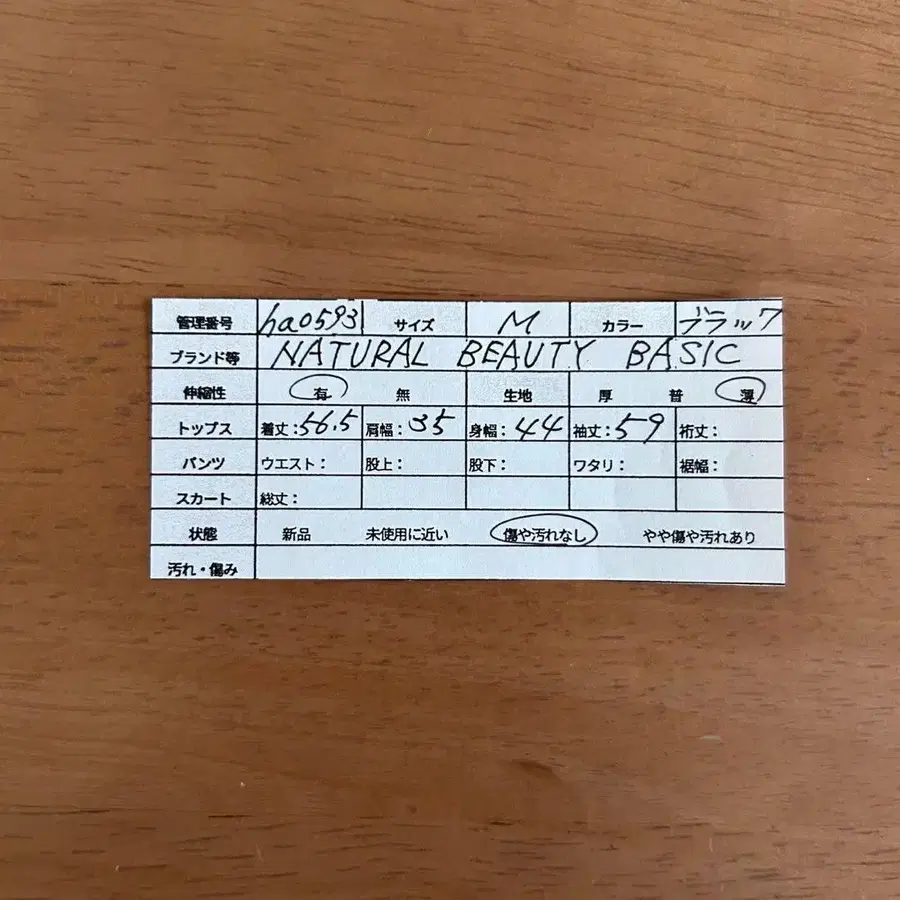 管理番号 ha0593 サイズ M カラー ブラック
ブランド等 NATURAL BEAUTY BASIC
伸縮性 有 無 生地 厚 普 薄
トップス 着丈:56.5 肩幅:35 身幅:44 袖丈:59 裄丈:
パンツ ウエスト: 股上: 股下: ワタリ: 裾幅:
スカート 総丈:
状態 新品 未使用に近い 傷や汚れなし やや傷や汚れあり
汚れ・傷み